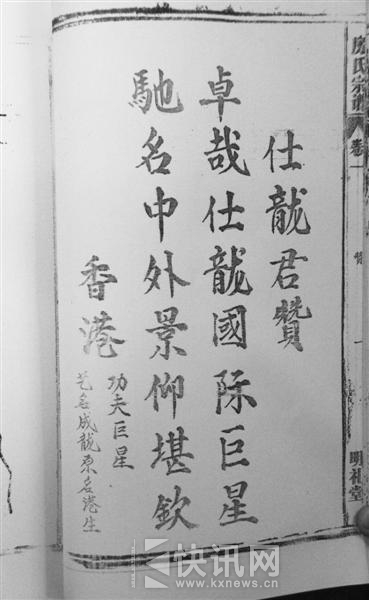 仕龍君贊
卓哉仕龍國际巨星
馳名中外景仰堪欽
香港
功夫巨星
艺名成龍原名港生
房氏宗譜
卷一
贊
一
明礼堂
快讯网
www.kxnews.cn